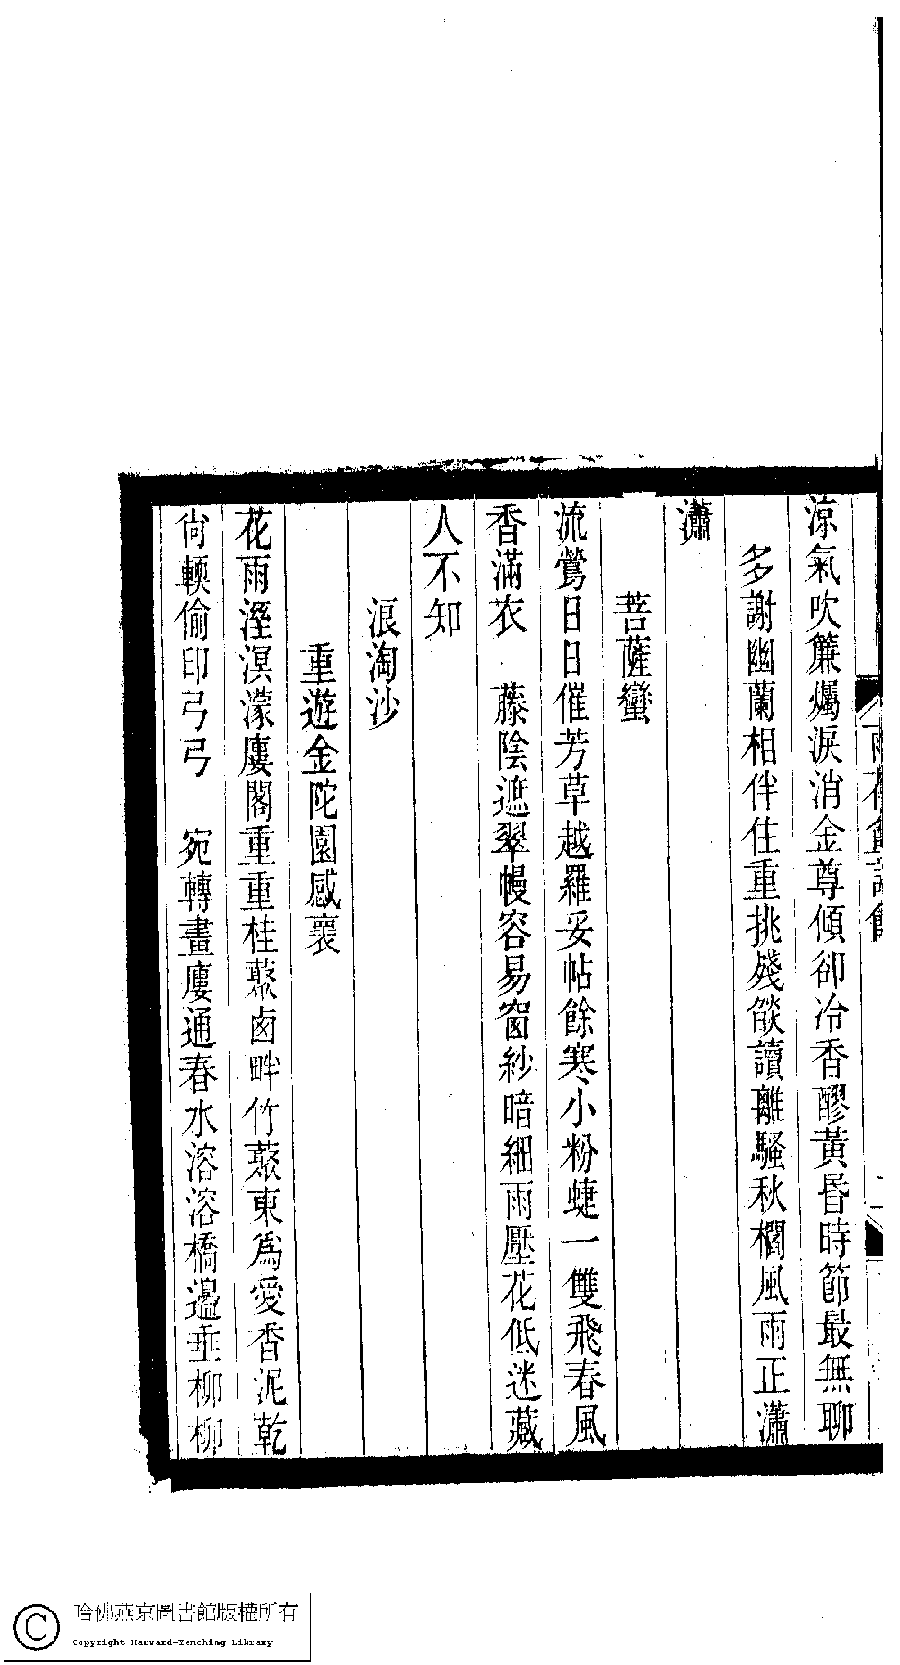 涼氣吹簾燭淚消金尊傾卻冷香醪黃昏時節最無聊
多謝幽蘭相伴住重挑殘燄讀離騷秋欄風雨正瀟
瀟
菩薩蠻
流鶯日日催芳草越羅妥帖餘寒小粉蜨一雙飛春風
香滿衣 藤陰遮翠幔容易窗紗暗細雨壓花低迷藏
人不知
浪淘沙
重遊金陀園感褱
花雨溼溟濛廔閣重重桂藂卤畔竹藂東爲愛香泥乾
尙輭偷印弓弓 宛轉畫廔通春水溶溶橋邊垂柳柳
哈佛燕京圖書館版權所有
Copyright Harvard-Yenching Library